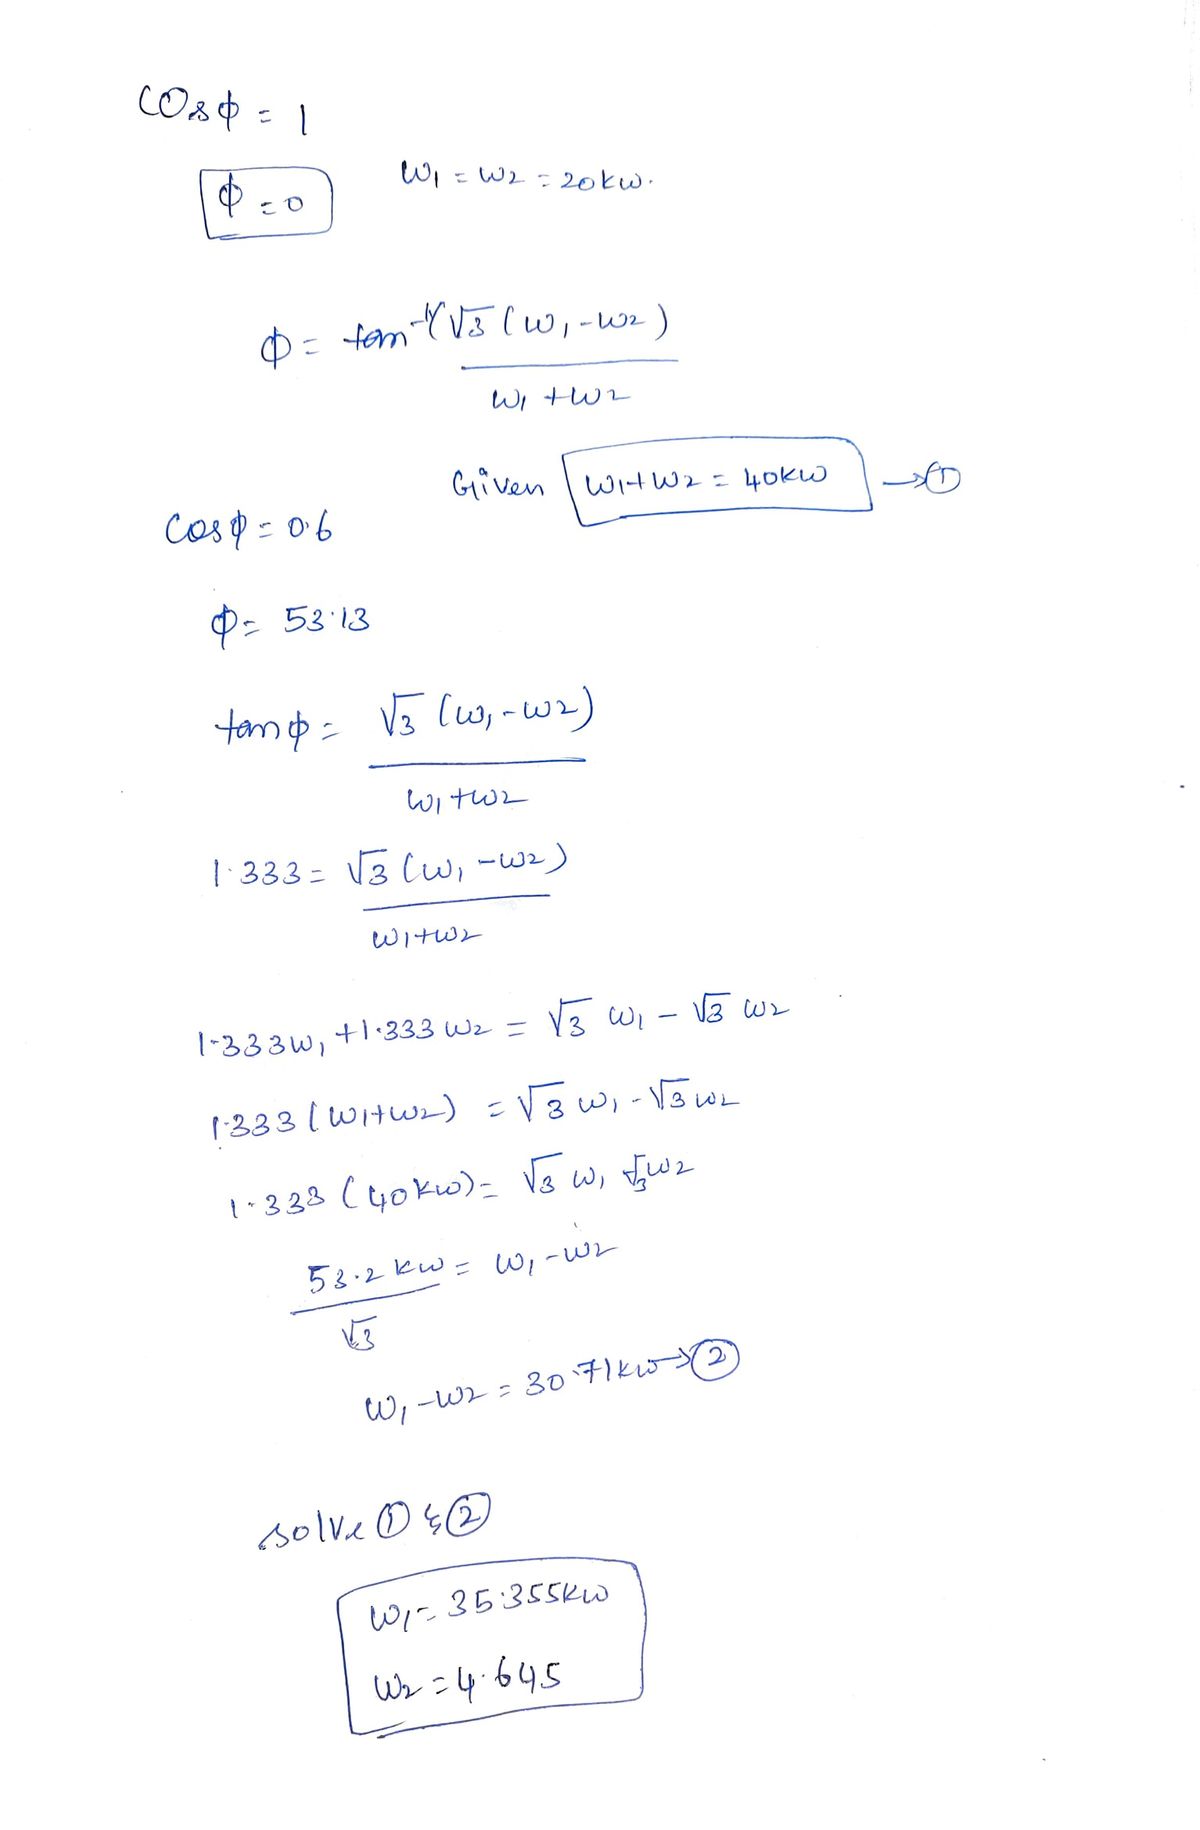 cosϕ = 1
ϕ = 0
W1 = W2 = 20kw.
ϕ = tan⁻¹(√3 (W1 - W2)
W1 + W2
Given W1+W2 = 40KW →①
Cosϕ = 0.6
ϕ = 53.13
tanϕ = √3 (W1 - W2)
W1 + W2
1.333 = √3 (W1 - W2)
W1+W2
1.333W1 + 1.333 W2 = √3 W1 - √3 W2
1.333 (W1+W2) = √3 W1 - √3 W2
1.333 (40KW) = √3 W1 √3 W2
53.2 KW = W1 - W2
√3
W1 - W2 = 30.71KW →②
solve ① & ②
W1 = 35.355KW
W2 = 4.645